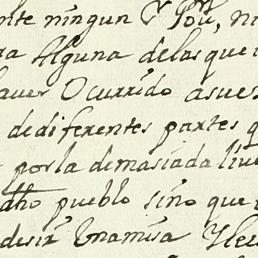 nte ningun Y Pou, n
ra Alguna delas que
auer Ocurrido asues
de diferentes partes q
por la demasiada lluv
dho pueblo sino que
desir Vna misa Y lle